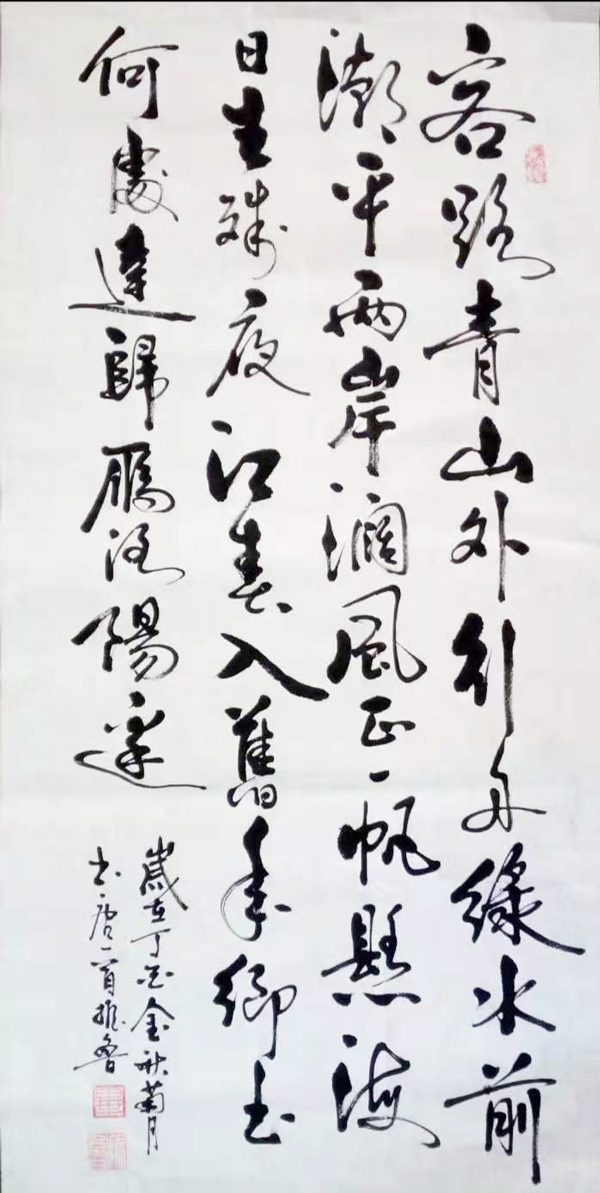 客路青山外行舟綠水前
潮平兩岸濶風正一帆懸海
日生殘夜江春入舊年鄉书
何處達歸雁洛陽邊
歲在丁酉金秋菊月
书唐一首